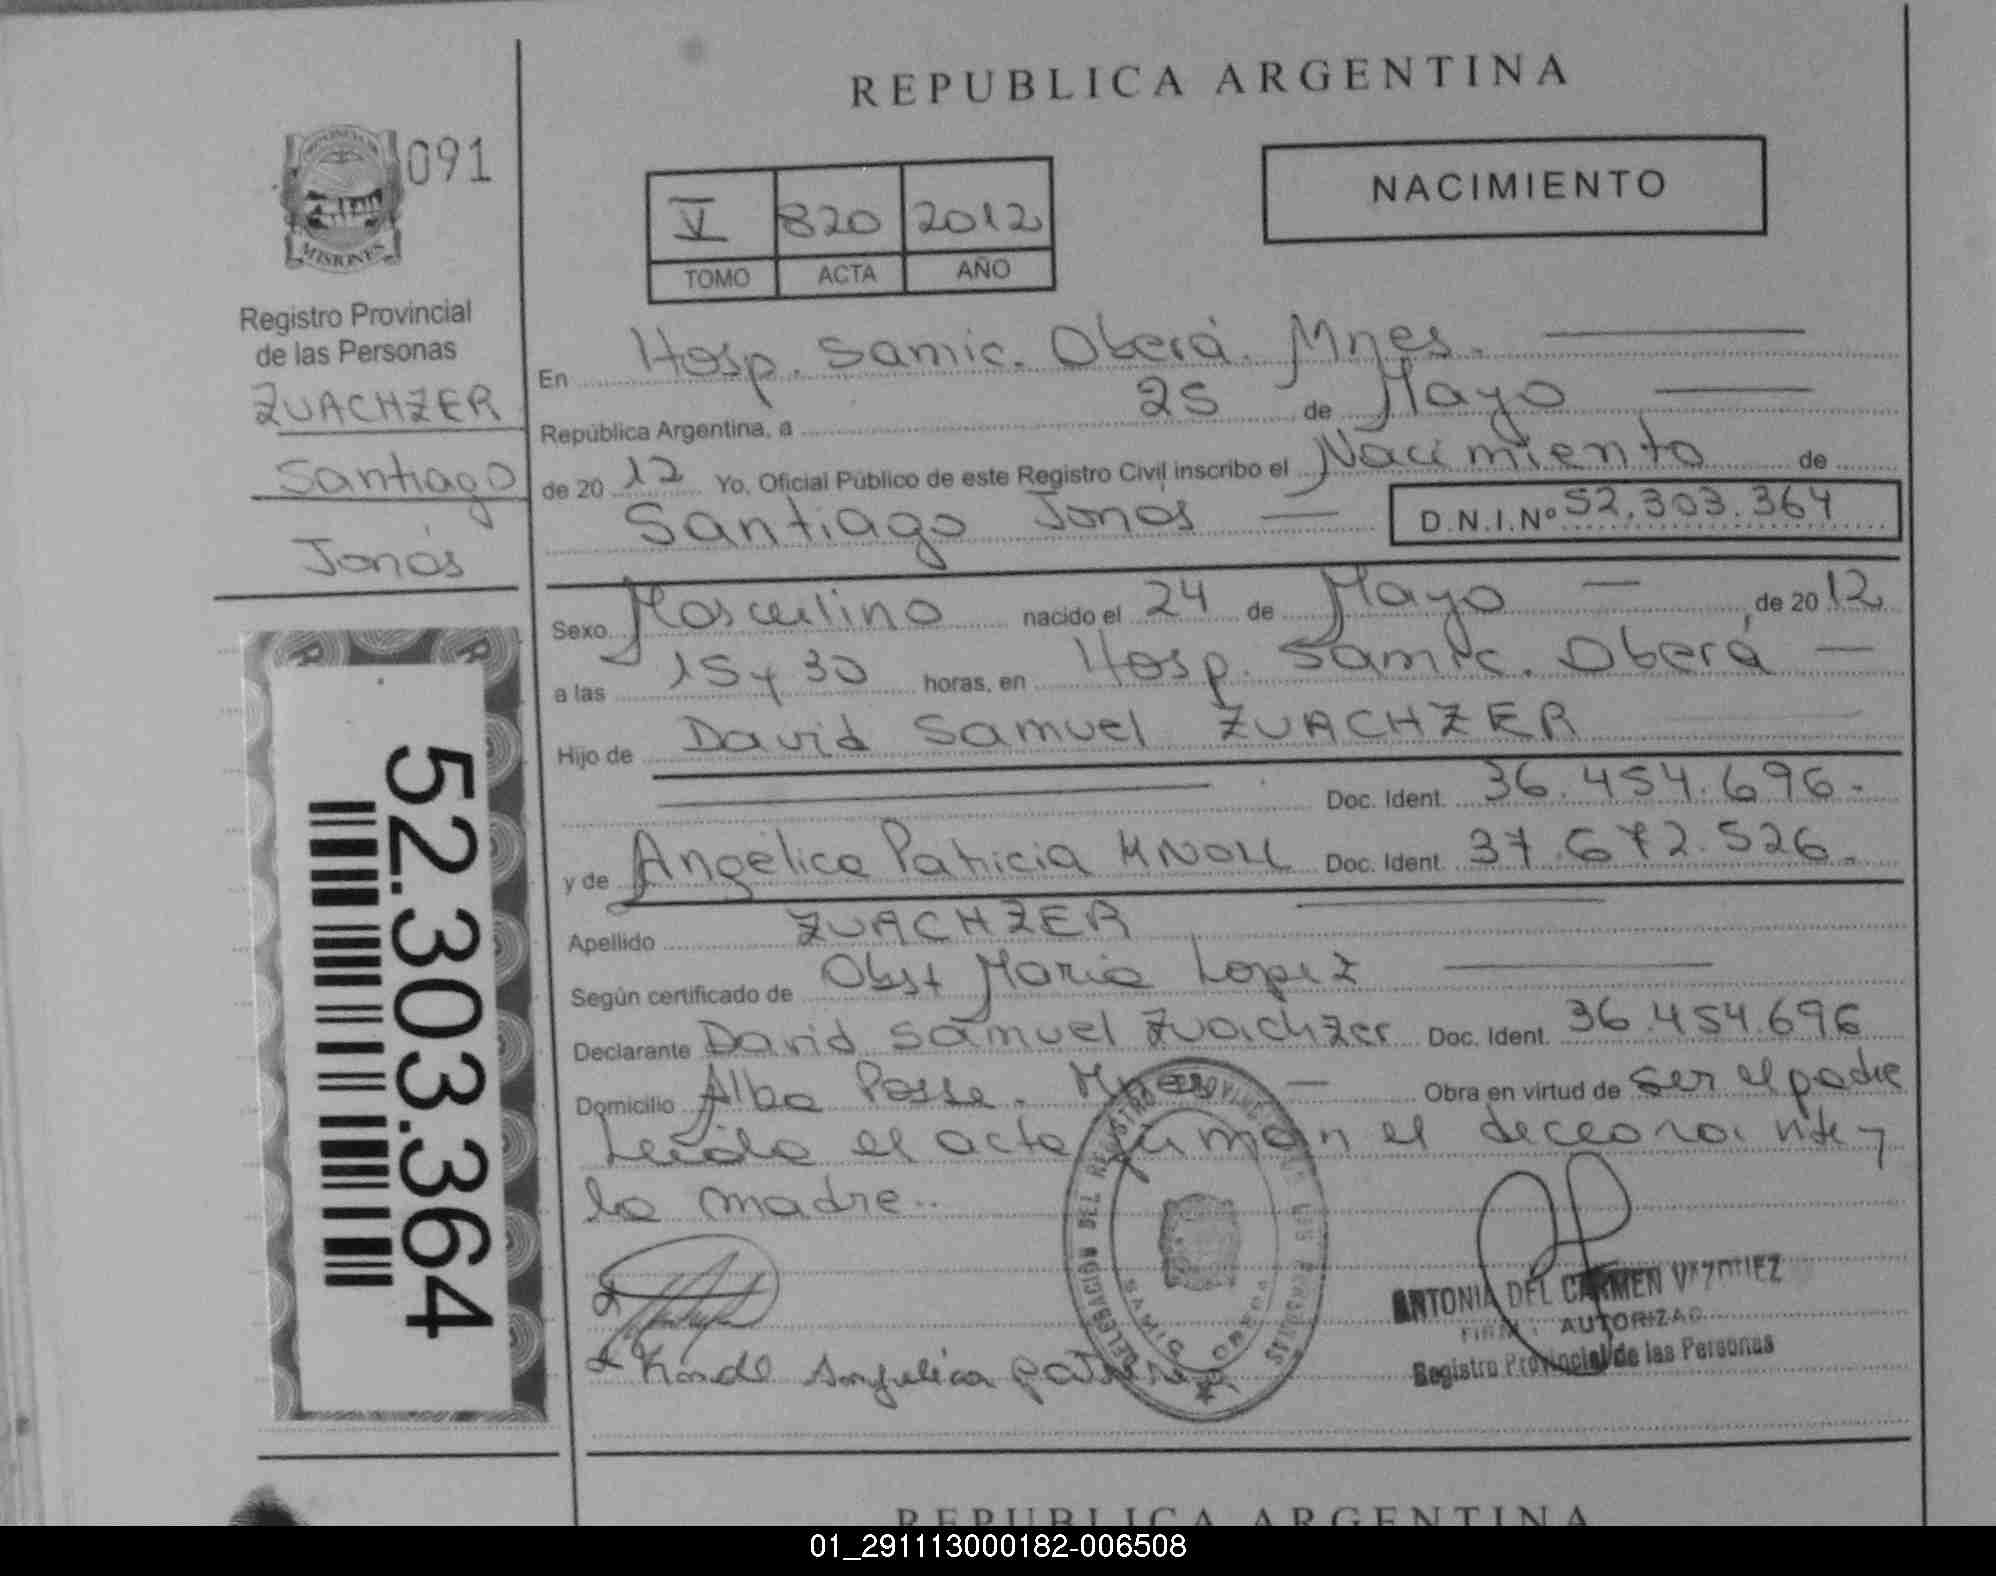 REPUBLICA ARGENTINA
091
MISIONES
NACIMIENTO
V 820 2012
TOMO ACTA AÑO
Registro Provincial
de las Personas
ZUACHZER
Santiago
Jonás
En Hosp. Samic. Oberá. Mnes.
República Argentina, a 25 de Mayo
de 2012 Yo, Oficial Público de este Registro Civil inscribo el Nacimiento de
Santiago Jonás D.N.I.Nº 52.303.364
Sexo Masculino nacido el 24 de Mayo de 2012
a las 15 y 30 horas, en Hosp. Samic. Oberá
Hijo de David Samuel ZUACHZER
Doc. Ident. 36.454.696.
y de Angélica Patricia KNOLL Doc. Ident. 37.672.526.
Apellido ZUACHZER
Según certificado de Obst Maria Lopez
Declarante David Samuel Zuachzer Doc. Ident. 36.454.696
Domicilio Alba Posse. Mnes Obra en virtud de ser el padre
Leida el acta firman el declarante y
la madre..
52.303.364
ANTONIA DEL CARMEN VAZQUEZ
AUTORIZAD
Registro Provincial de las Personas
Angelica
REPUBLICA ARGENTINA
01_291113000182-006508